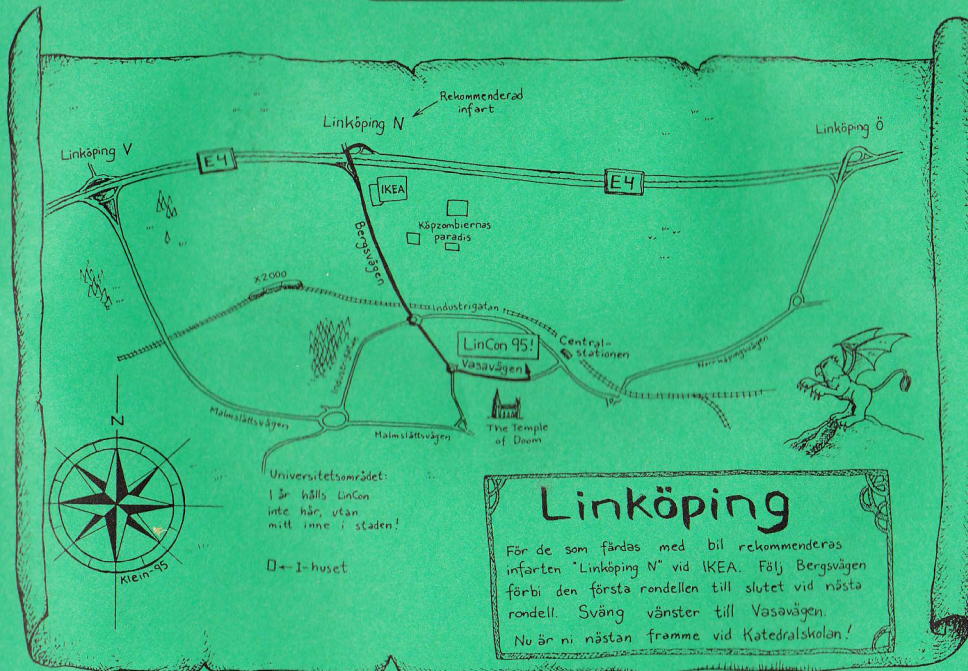 Rekommenderad
infart
Linköping N
Linköping Ö
Linköping V
E4
E4
IKEA
Köpzombiernas
paradis
Bergsvägen
X2000
Industrigatan
LinCon 95!
Central-
stationen
Vasavägen
Norrköpingsvägen
Industrigatan
Malmslättsvägen
Malmslättsvägen
The Temple
of Doom
N
Klein-95
Universitetsområdet:
I år hålls LinCon
inte här, utan
mitt inne i staden!
I-huset
Linköping
För de som färdas med bil rekommenderas
infarten "Linköping N" vid IKEA. Följ Bergsvägen
förbi den första rondellen till slutet vid nästa
rondell. Sväng vänster till Vasavägen.
Nu är ni nästan framme vid Katedralskolan!